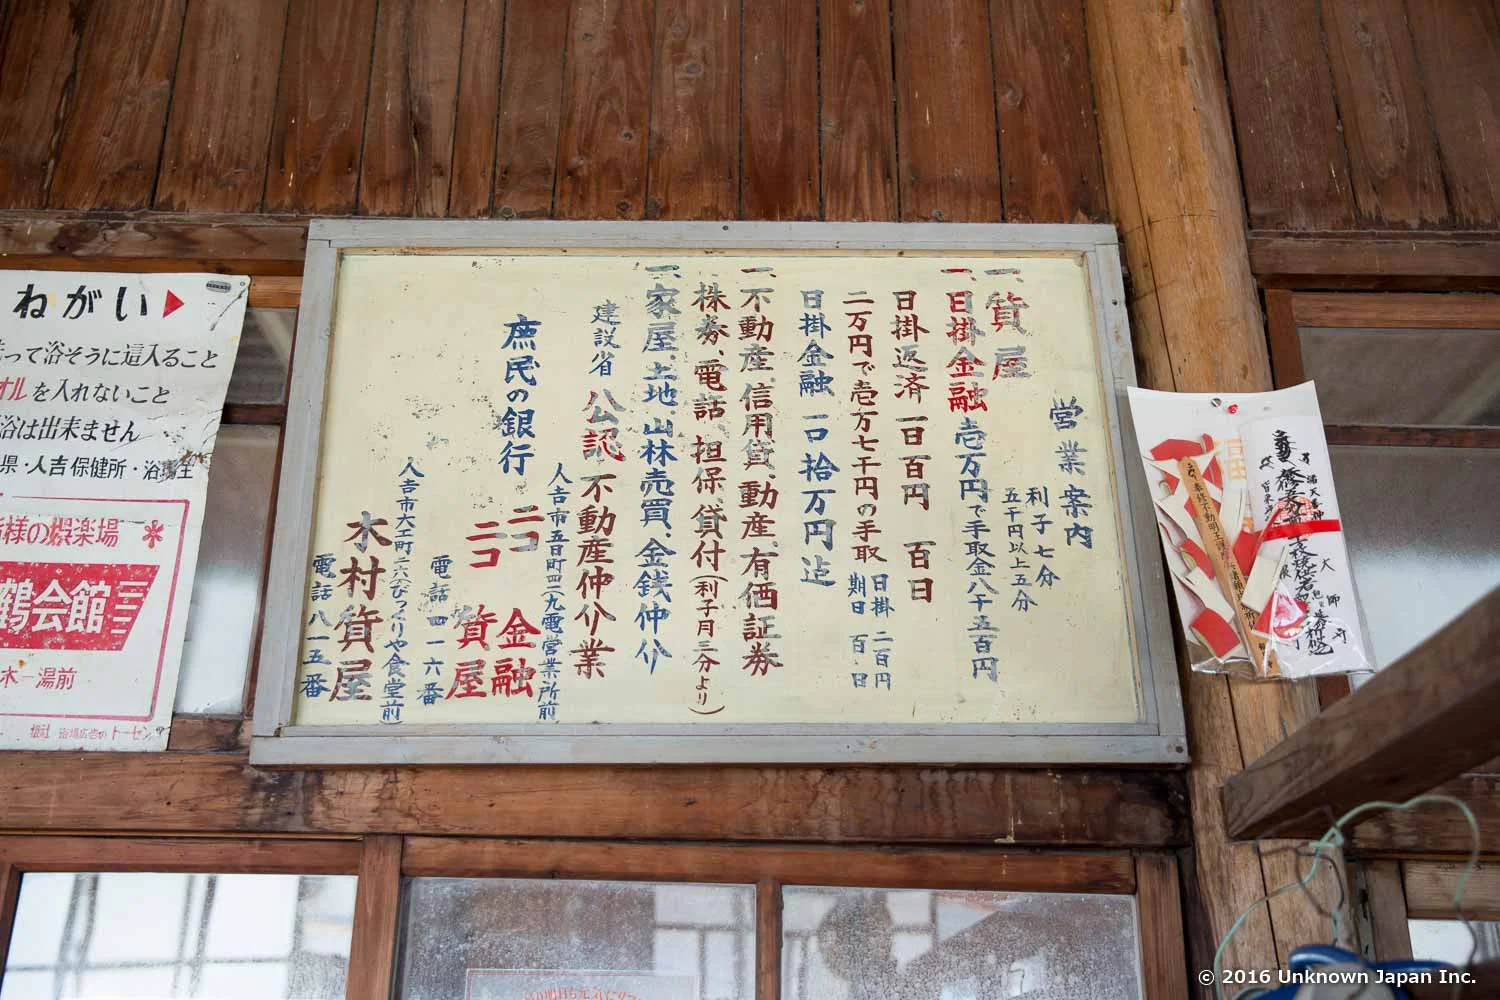 営業案内
一、質屋
利子七分
五千円以上五分
一、日掛金融 壱万円で手取金八千五百円
日掛返済 一日百円 百日
二万円で壱万七千円の手取
日掛 二百円
期日 百日
日掛金融 一口拾万円迄
一、不動産、信用貸、動産、有価証券
株券、電話、担保、貸付(利子月三分より)
一、家屋、土地、山林売買、金銭仲介
建設省 公認 不動産仲介業
庶民の銀行
人吉市五日町四九電営業所前
ニコニコ 金融 質屋
電話四一六番
人吉市大工町二六(びっくりや食堂前)
木村質屋
電話八一五番
ねがい▶
って浴そうに這入ること
オルを入れないこと
浴は出来ません
県・人吉保健所・浴場主
皆様の娯楽場
鶴会館
木―湯前
© 2016 Unknown Japan Inc.